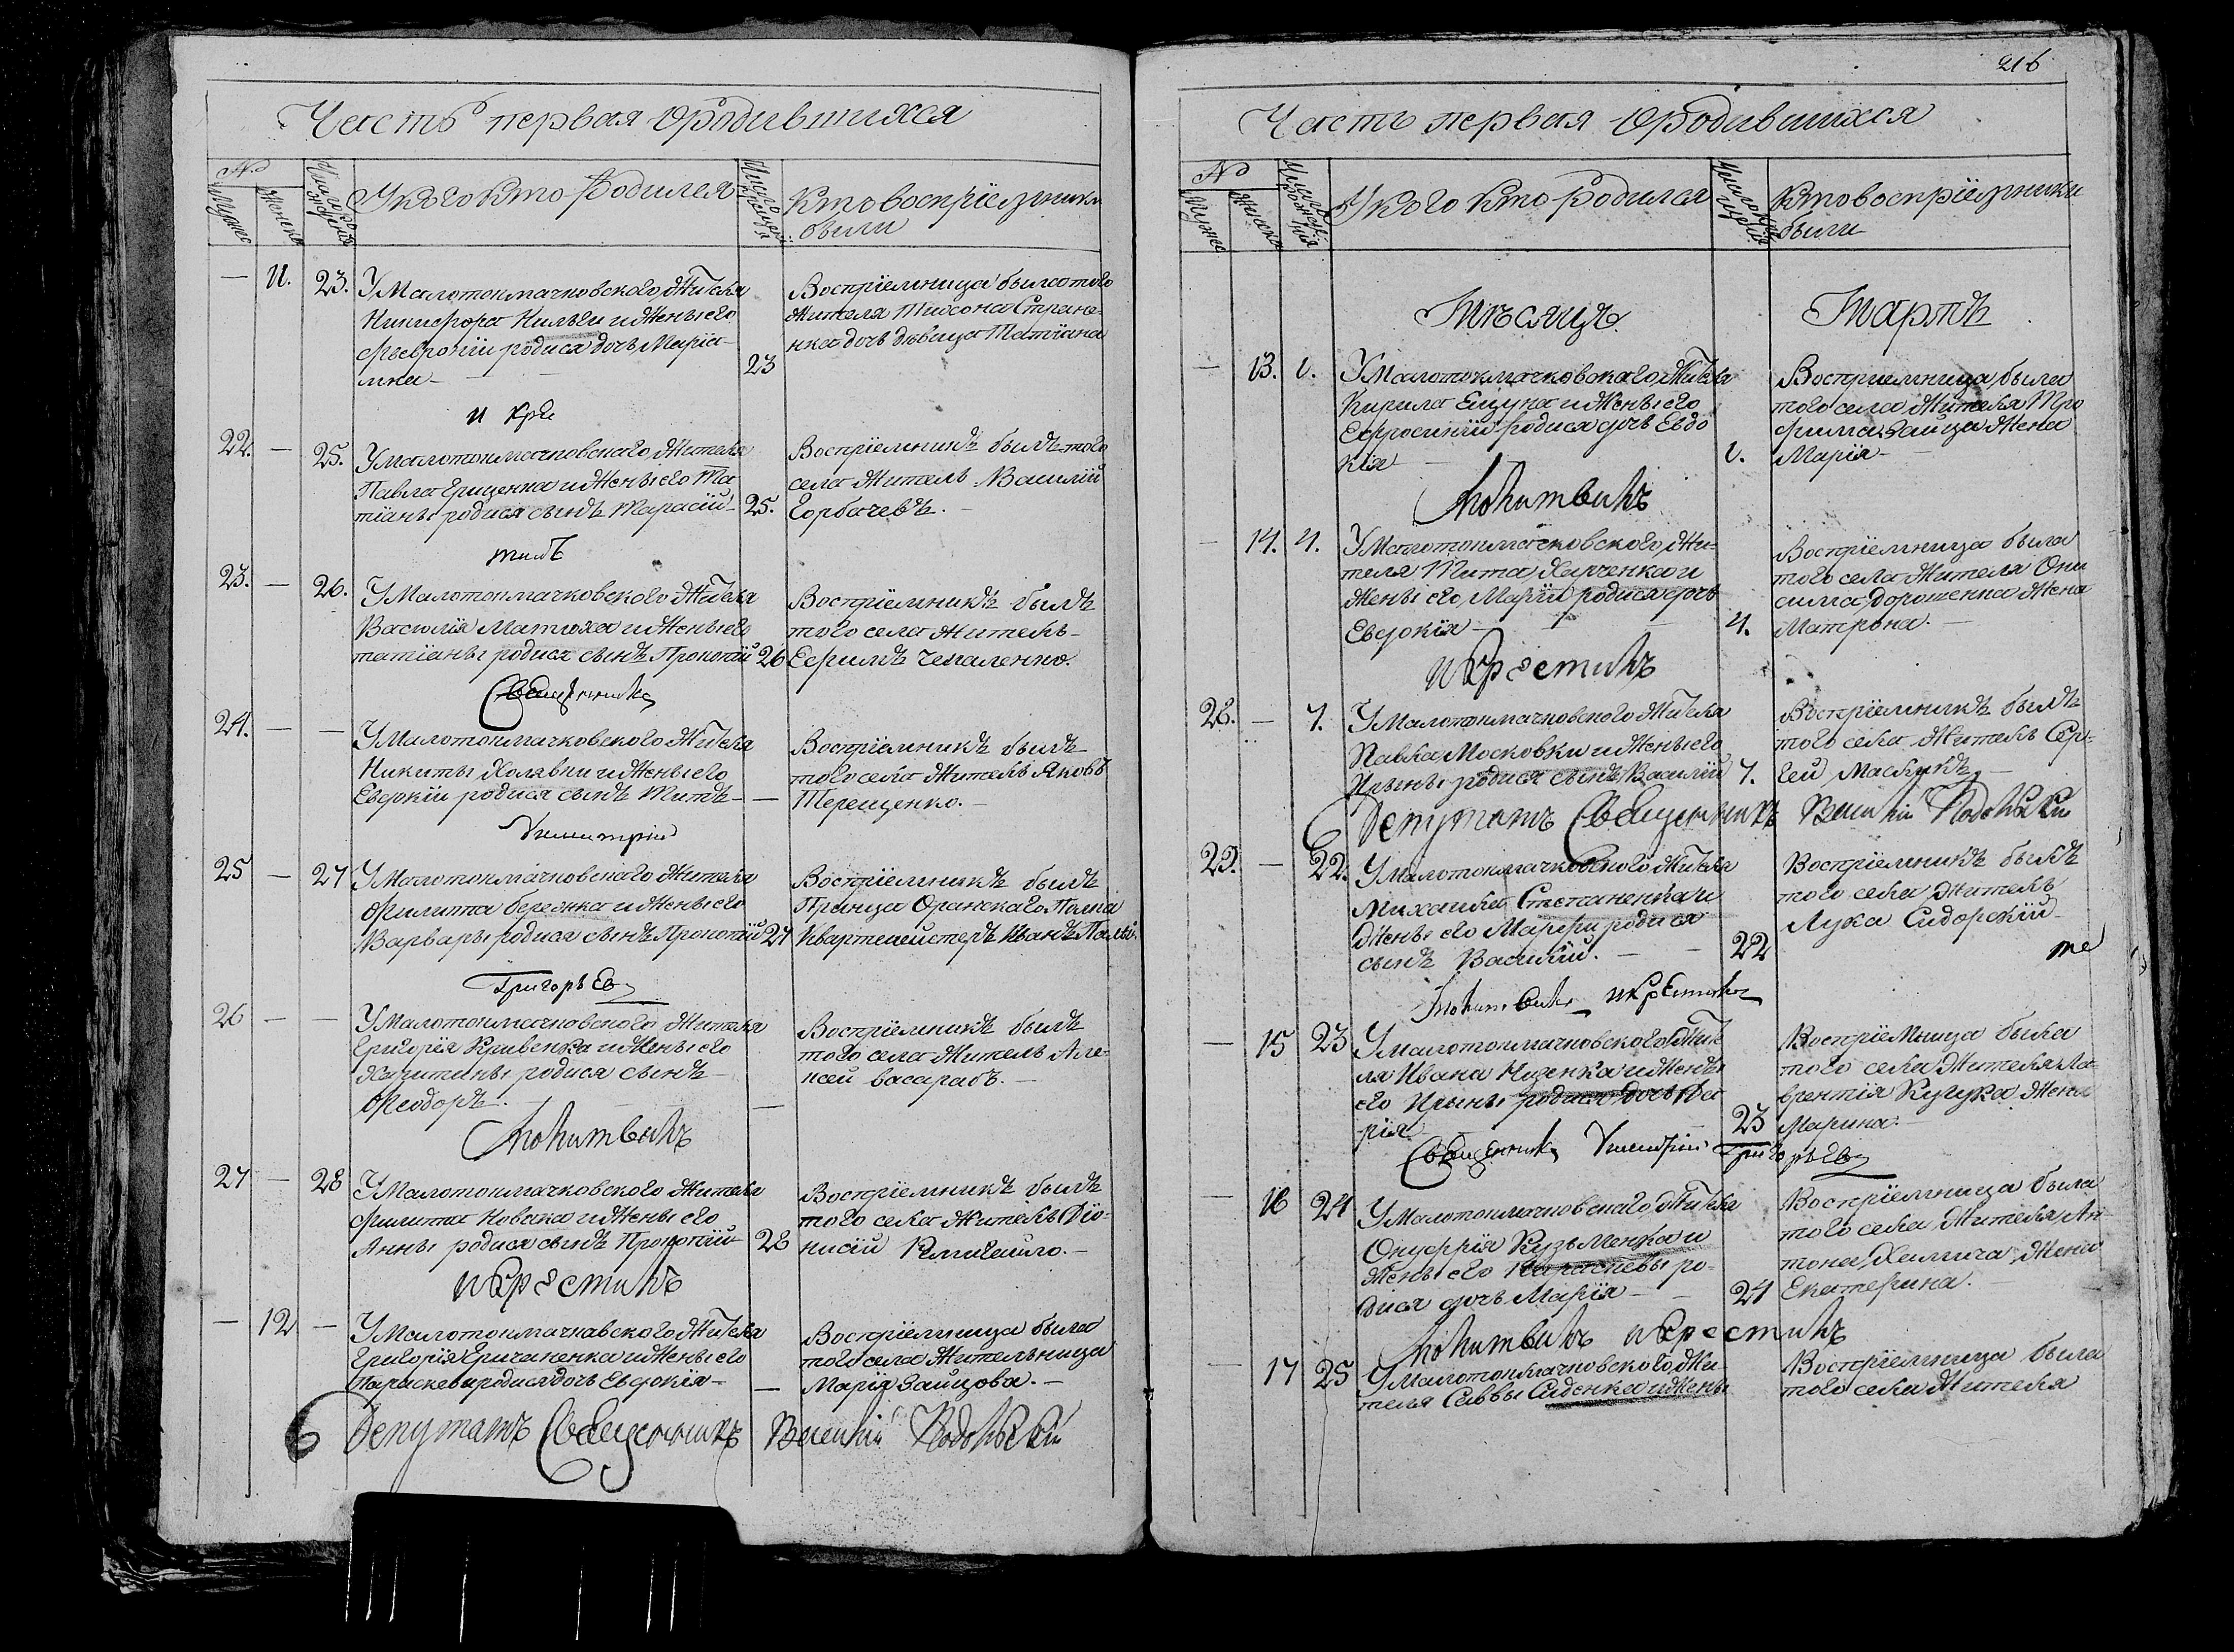 Часть первая о родившихся
№
Мужес
Женска
Число рождения
У кого кто родился
Число крещения
Кто восприемники
были
— 11. 23. У Малотокмачковского жителя
Никифора
и жены его
Февронии родися дочь Мария-
мна — 23
Восприемница была того
жителя
дочь девица Татиана
и кре
22. — 25. У Малотокмачковского жителя
Павла Гриценка и жены его Та-
тианы родися сынъ Тарасий — 25.
Восприемникъ былъ того
села житель Василий
Горбачевъ. —
тилъ
23. — 26. У Малотокмачковского жителя
Василия Матюха и жены его
татианы родися сынъ Прокопий 26
Восприемникъ былъ
того села житель —
Ефимъ
Священникъ
24. — — У Малотокмачковского жителя
Никиты Халявки и жены его
Евдокии родися сынъ Титъ — —
Восприемникъ былъ
того села житель Яковъ
Терещенко. —
Димитрий
25 — 27 У Малотокмачковского жителя
Филиппа
и жены его
Варвары родися сынъ Прокопий 27
Восприемникъ былъ
Принца Оранскаго Полка
Квартемейстеръ Иванъ
Григорьев
26 — — У Малотокмачковского жителя
Григория Кривенка и жены его
Харитины родися сынъ —
Феодоръ. — —
Восприемникъ былъ
того села житель Але-
ксей Басарабъ. —
Молитвилъ
27 — 28 У Малотокмачковского жителя
Филипа Новака и жены его
Анны родися сынъ Прокопий 28
Восприемникъ былъ
того села житель Дио-
нисий
и крестилъ
— 12 — У Малотокмачковского жителя
Григория
и жены его
Параскевы родися дочь Евдокия — —
Восприемница была
того села жительница
Мария Зайцова. —
Депутатъ Священникъ
Подольский
216
Часть первая о родившихся
№
Мужес
Женска
Число рождения
У кого кто родился
Число крещения
Кто восприемники
были
Месяцъ Мартъ
— 13. 1. У Малотокмачковского жителя
Кирила Ещука и жены его
Ефросинии родися дочь Евдо
кия — 1.
Восприемница была
того села жителя Тро
фима Зайца жена
Мария —
Молитвилъ
— 14. 4. У Малотокмачковского жи-
теля Тита Харченка и
жены его Марии родися дочь
Евдокия — 4.
Восприемница была
того села жителя Они
сима Дорошенка жена
Матрона. —
и крестилъ
28. — 7. У Малотокмачковского жителя
Павла Московки и жены его
Ирины родися сынъ Василий 7.
Восприемникъ былъ
того села житель Сер-
гей
Депутатъ Священникъ
Подольский
29. — 22. У Малотокмачковского жителя
Михаила Степаненка и
жены его Марфы родися
сынъ Василий. — 22
Восприемникъ былъ
того села житель
Лука Сидорский
Молитвилъ и крестилъ
— 15 23 У Малотокмачковского жите
ля Ивана
и жены
его Ирины родися дочь Ма
рия 23
Восприемница была
того села жителя Ла-
врентия
жена
Марина. —
Священникъ Димитрий Григорьев
— 16 24 У Малотокмачковского жителя
Онуфрия Кузьменка и
жены его Параскевы ро-
дися дочь Мария — 24
Восприемница была
того села жителя Ан
тона
жена
Екатерина.
Молитвилъ и крестилъ
— 17 25 У Малотокмачковского жи-
теля Саввы
и жены
Восприемница была
того села жителя